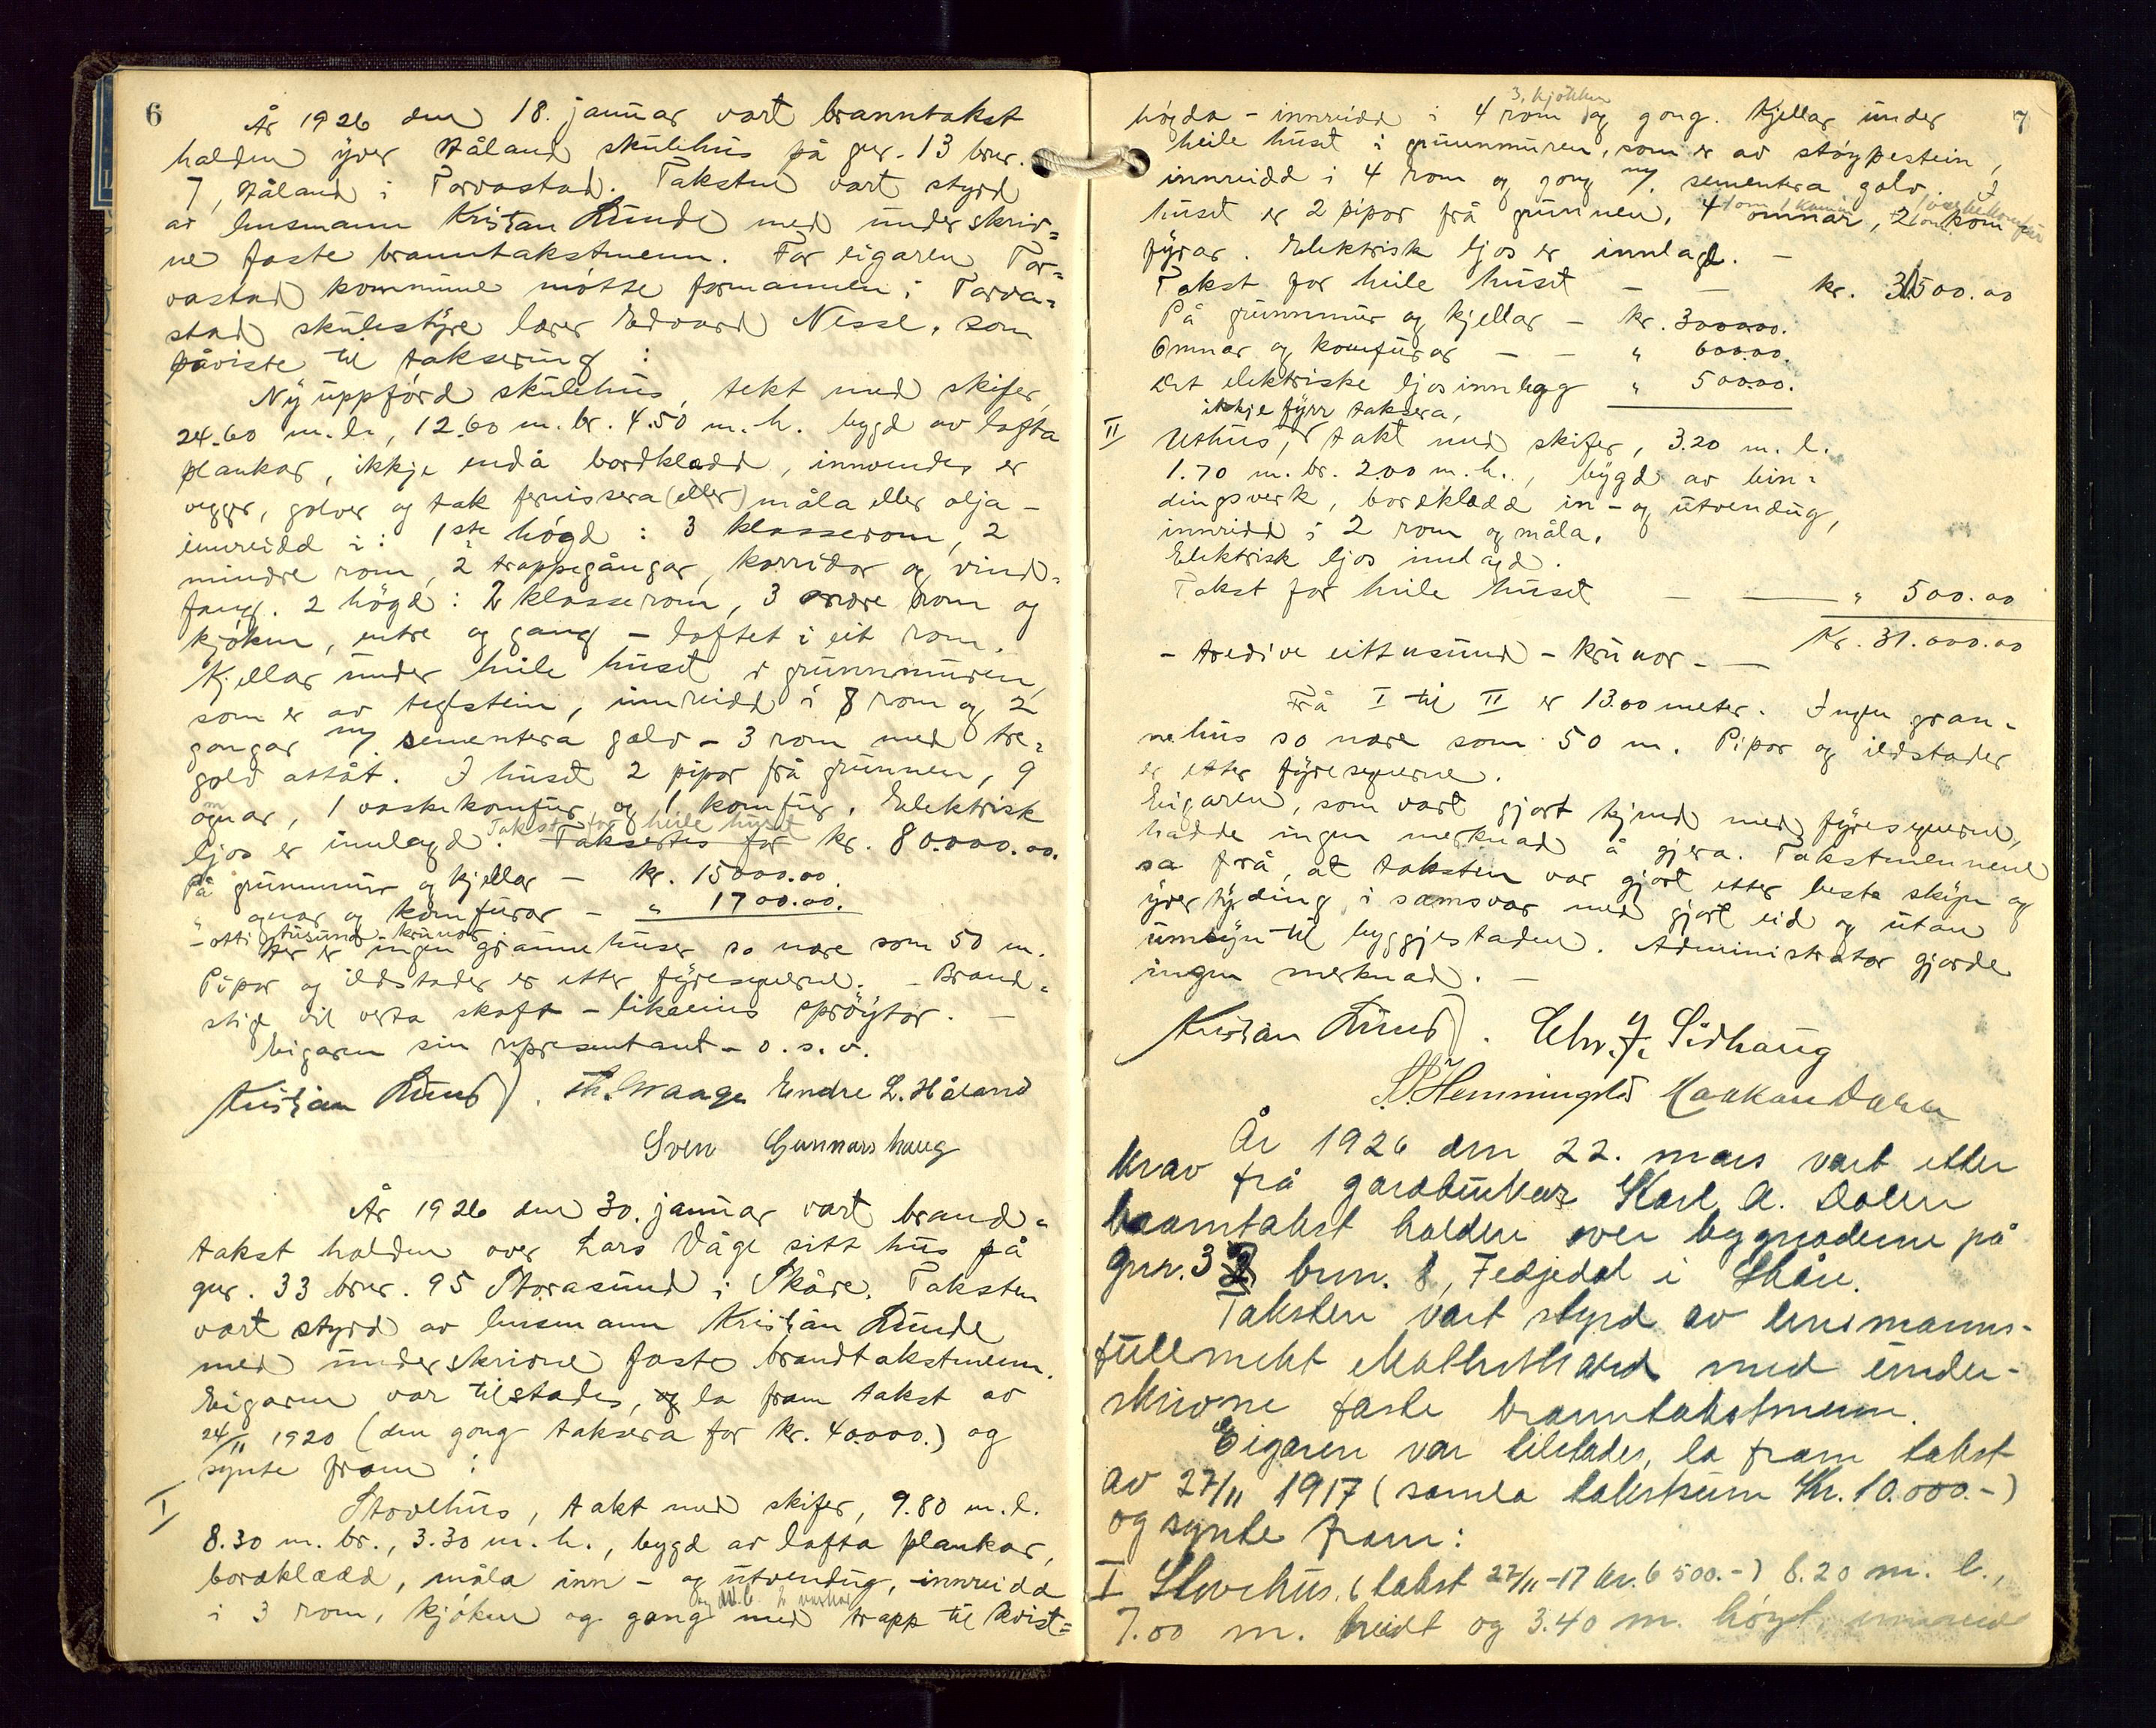 6
År 1926 den 18. januar vart branntakst
halden yver Håland skulehus på gnr. 13 bnr.
7, Håland i Torvastad. Taksten vart styrd
av lensmann Kristian Lunde med underskriv=
ne faste branntakstmenn. For eigaren, Tor=
vastad kommune møtte formannen i Torva=
stad skulestyre lærer Edvard Nesse, som
påviste til taksering:
Ny uppførd skulehus, tekt med skifer,
24.60 m. l., 12.60 m. br. 4.50 m. h. bygd av lafta
plankar, ikkje endå bordklædd, innvendes er
vegger, golver og tak fernissera (eller) måla eller olja -
innreidd i: 1ste høgd: 3 klasserom, 2
mindre rom, 2 trappegångar, korridor og vind=
fang. 2 høgd: 2 klasserom, 3 andre rom og
kjøken, entre og gang - loftet i eit rom.
Kjellar under heile huset i grunnmuren,
som er av teglstein, innreidd i 8 rom og 2
gangar m/ sementera golv - 3 rom med tre=
golv attåt. I huset 2 pipor frå grunnen, 9
omnar, 1 vaskekomfur og 1 komfur. Elektrisk
ljos er innlagd. Takst for heile huset Taksertes for kr. 80.000.00.
På grunnmur og kjellar - kr. 15000.00.
" ognar og komfurar - " 1700.00.
- otti tusund - krunor
Der er ingen grannehuser so nære som 50 m.
Pipor og ildstader er etter fyresegnerne. - Brand=
stige vil verta skaft - likaeins sprøytor. -
Eigaren sin representant - o. s. v.
Kristian Lunde. Th. Waage Endre L. Håland
Sven Gunnarshaug
År 1926 den 30. januar vart brand=
takst halden over Lars Våge sitt hus på
gnr. 33 bnr. 95 Storasund i Skåre. Taksten
vart styrd av lensmann Kristian Lunde
med underskrivne faste brandtakstmenn.
Eigaren var tilstades, og la fram takst av
24/11 1920 (den gong taksera for kr. 40.000.) og
synte fram:
I
Stovehus, takt med skifer, 9.80 m. l.
8.30 m. br., 3.30 m. h., bygd av lafta plankar,
bordklædd, måla inn- og utvendug, - innreidd
i 3 rom, kjøken og gang med trapp til kvist=
7
høgda - innreidd i 4 rom 3, kjøkken og gong. Kjellar under
heile huset i grunnmuren, som er av støypestein,
innreidd i 4 rom og gong m/ sementera golv. I
huset er 2 pipor frå grunnen, 4 omnar, 2 kom
fyrar. Elektrisk ljos er innlagd. -
Takst for heile huset - - kr. 30500.00
På grunnmur og kjellar - kr. 3000.00.
Omnar og komfurar - - " 600.00.
Det elektriske ljosinnlegg " 500.00.
ikkje fyrr taksera,
II Uthus, takt med skifer, 3.20 m. l.
1.70 m. br. 2.00 m. h., bygd av bin=
dingsverk, bordklædd in- og utvendug,
innreidd i 2 rom og måla.
Elektrisk ljos innlagd.
Takst for heile huset - " 500.00
Kr. 31.000.00
- tredive eittusund - krunor -
Frå I til II er 13.00 meter. Ingen gran=
nehus so nære som 50 m. Pipor og ildstader
er etter fyresegnerne.
Eigaren, som vart gjort kjend med fyresegnerne,
hadde ingen merknad å gjera. Takstmennene
sa frå, at taksten var gjort etter beste skyn og
yvertyding, i samsvar med gjort eid og utan
umsyn til byggjestaden. Administrator gjorde
ingen merknad. -
Kristian Lunde. Chr. J. Sidhaug
Haakon Dahle
År 1926 den 22. mars vart etter
krav frå gardbrukar Karl A. Dalen
branntakst halden over bygnaderne på
gnr. 32 bnr. 8, Fedjedal i Skåre.
Taksten vart styrd av lensmanns-
fullmekt med under-
skrivne faste branntakstmenn.
Eigaren var tilstades, la fram takst
av 27/11 1917 (samla takstsum Kr. 10.000.-)
og synte fram:
I Stovehus. (takst 27/11-17 kr. 6 500.-) 8.20 m. l.,
7.00 m. breidt og 3.40 m. høgt, innreidd